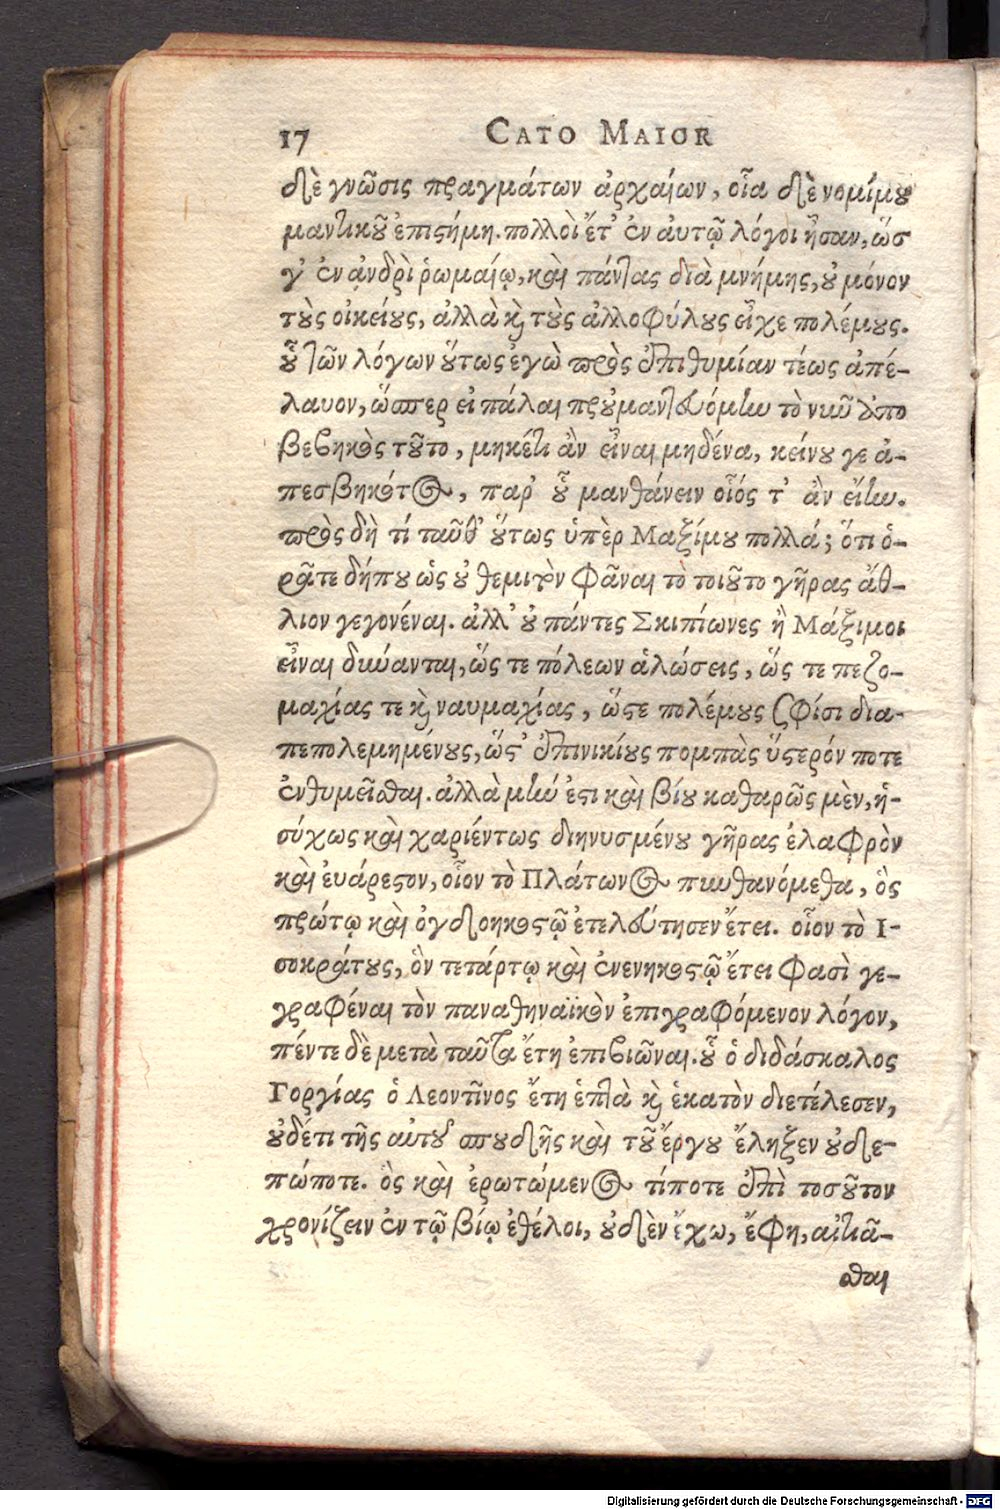 17 CATO MAIOR
δὲ γνῶσις πραγμάτων ἀρχαίων, οἵα δὲ νομίμου
μαντικοῦ ἐπιστήμη. πολλοὶ ἔτ' ἐν αὐτῷ λόγοι ἦσαν, ὥς
γ' ἐν ἀνδρὶ ῥωμαίῳ, καὶ πάντας διὰ μνήμης, οὐ μόνον
τοὺς οἰκείους, ἀλλὰ καὶ τοὺς ἀλλοφύλους εἶχε πολέμους.
οὗ τῶν λόγων οὕτως ἐγὼ πρὸς ἐπιθυμίαν τέως ἀπέ-
λαυον, ὥσπερ εἰ πάλαι προυμαντευόμην τὸ νῦν ἀπο
βεβηκὸς τοῦτο, μηκέτι ἂν εἶναι μηδένα, κείνου γε ἀ-
πεσβηκότος, παρ' οὗ μανθάνειν οἷός τ' ἂν εἴην.
πρὸς δὴ τί ταῦθ' οὕτως ὑπὲρ Μαξίμου πολλά; ὅτι ὁ-
ρᾶτε δήπου ὡς οὐ θεμιτὸν φᾶναι τὸ τοιοῦτο γῆρας ἄθ-
λιον γεγονέναι. ἀλλ' οὐ πάντες Σκιπίωνες ἢ Μάξιμοι
εἶναι δύνανται, ὥς τε πόλεων ἁλώσεις, ὥς τε πεζο-
μαχίας τε καὶ ναυμαχίας, ὥστε πολέμους σφίσι δια-
πεπολεμημένους, ὥστ' ἐπινικίους πομπὰς ὕστερόν ποτε
ἐνθυμεῖσθαι. ἀλλὰ μὴν ἐστὶ καὶ βίου καθαρῶς μὲν, ἡ-
σύχως καὶ χαριέντως διηνυσμένου γῆρας ἐλαφρὸν
καὶ ἐυάρεστον, οἷον τὸ Πλάτωνος πυνθανόμεθα, ὃς
πρώτῳ καὶ ὀγδοηκοστῷ ἐτελεύτησεν ἔτει. οἷον τὸ Ι-
σοκράτους, ὃν τετάρτῳ καὶ ἐνενηκοστῷ ἔτει φασὶ γε-
γραφέναι τὸν παναθηναϊκὸν ἐπιγραφόμενον λόγον,
πέντε δὲ μετὰ ταῦτα ἔτη ἐπιβιῶναι. οὗ ὁ διδάσκαλος
Γοργίας ὁ Λεοντῖνος ἔτη ἑπτὰ καὶ ἑκατὸν διετέλεσεν,
οὐδέτι τῆς αὐτοῦ σπουδῆς καὶ τοῦ ἔργου ἔληξεν οὐδε-
πώποτε. ὃς καὶ ἐρωτώμενος τίποτε ἐπὶ τοσοῦτον
χρονίζειν ἐν τῷ βίῳ ἐθέλοι, οὐδὲν ἔχω, ἔφη, αἰτιᾶ-
σθαι
Digitalisierung gefördert durch die Deutsche Forschungsgemeinschaft - DFG